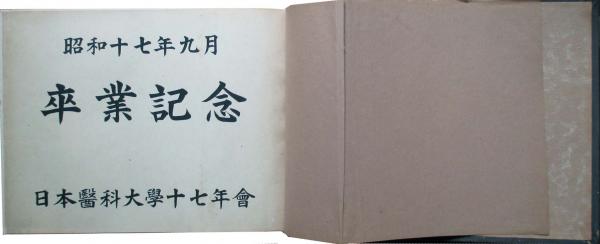 昭和十七年九月
卒業記念
日本醫科大學十七年會